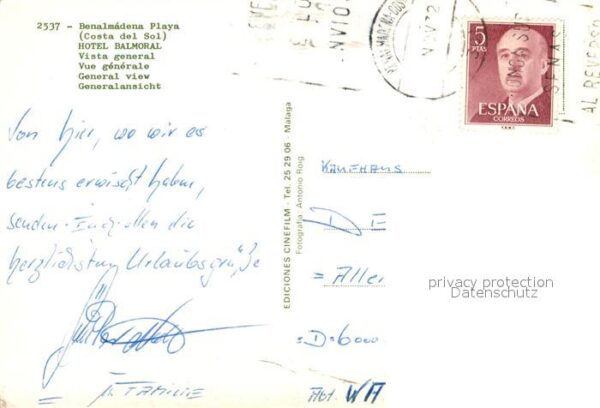 2537 - Benalmádena Playa
(Costa del Sol)
HOTEL BALMORAL
Vista general
Vue générale
General view
Generalansicht
5
PTAS
ESPAÑA
CORREOS
AL REVERSO
Von hier, wo wir es
bestens erwischt haben,
senden Euch allen die
herzlichsten Urlaubsgrüße
m. FAMILIE
EDICIONES CINEFILM - Tel. 25 29 06 - Malaga
Fotografia: Antonio Roig
KAUFHAUS
D E
= Aller
privacy protection
Datenschutz
=D-6000
Abt. WA